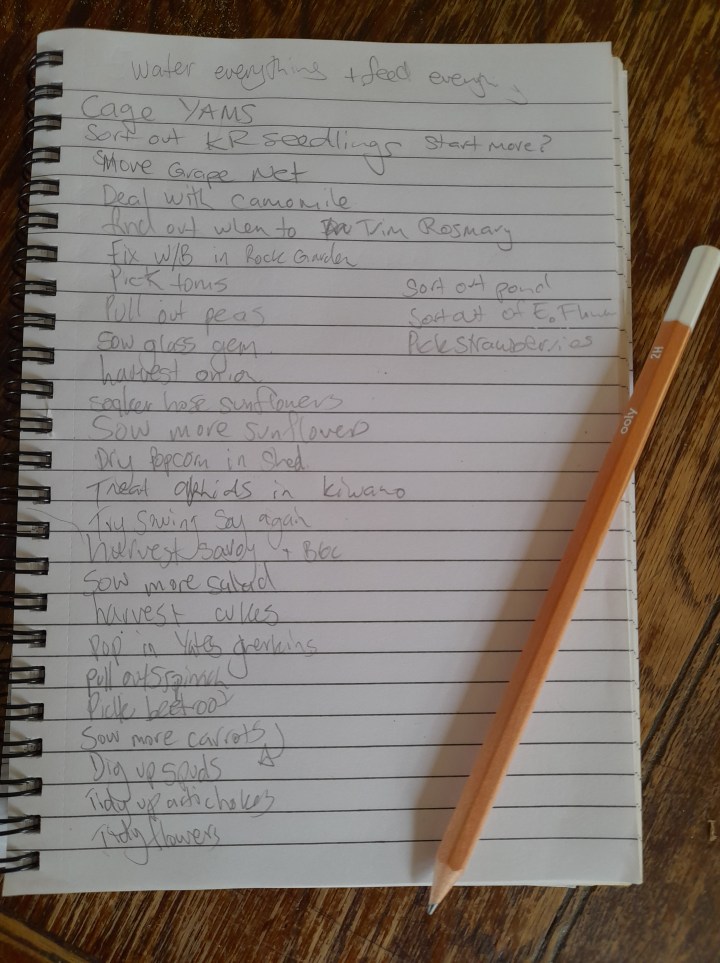 Water everything + feed
Cage YAMS
Sort out KR seedlings start more?
Move Grape Net
Deal with camomile
find out when to Trim Rosmary
fix W/B in Rock Garden
Pick toms
Pull out peas
Sow glass gem
harvest onion
soaker hose sunflowers
Sow more sunflowers
Dry Popcorn in Shed
Treat aphids in kiwano
Try Soy again
harvest savoy + Boc
Sow more salad
harvest cukes
Pop in Yates gerkins
pull out
Pick beetroot
Sow more carrots
Dig up spuds
Tidy up artichokes
Tidy flowers
Sort out pond
Sort out
Pick strawberries
ooly 2H